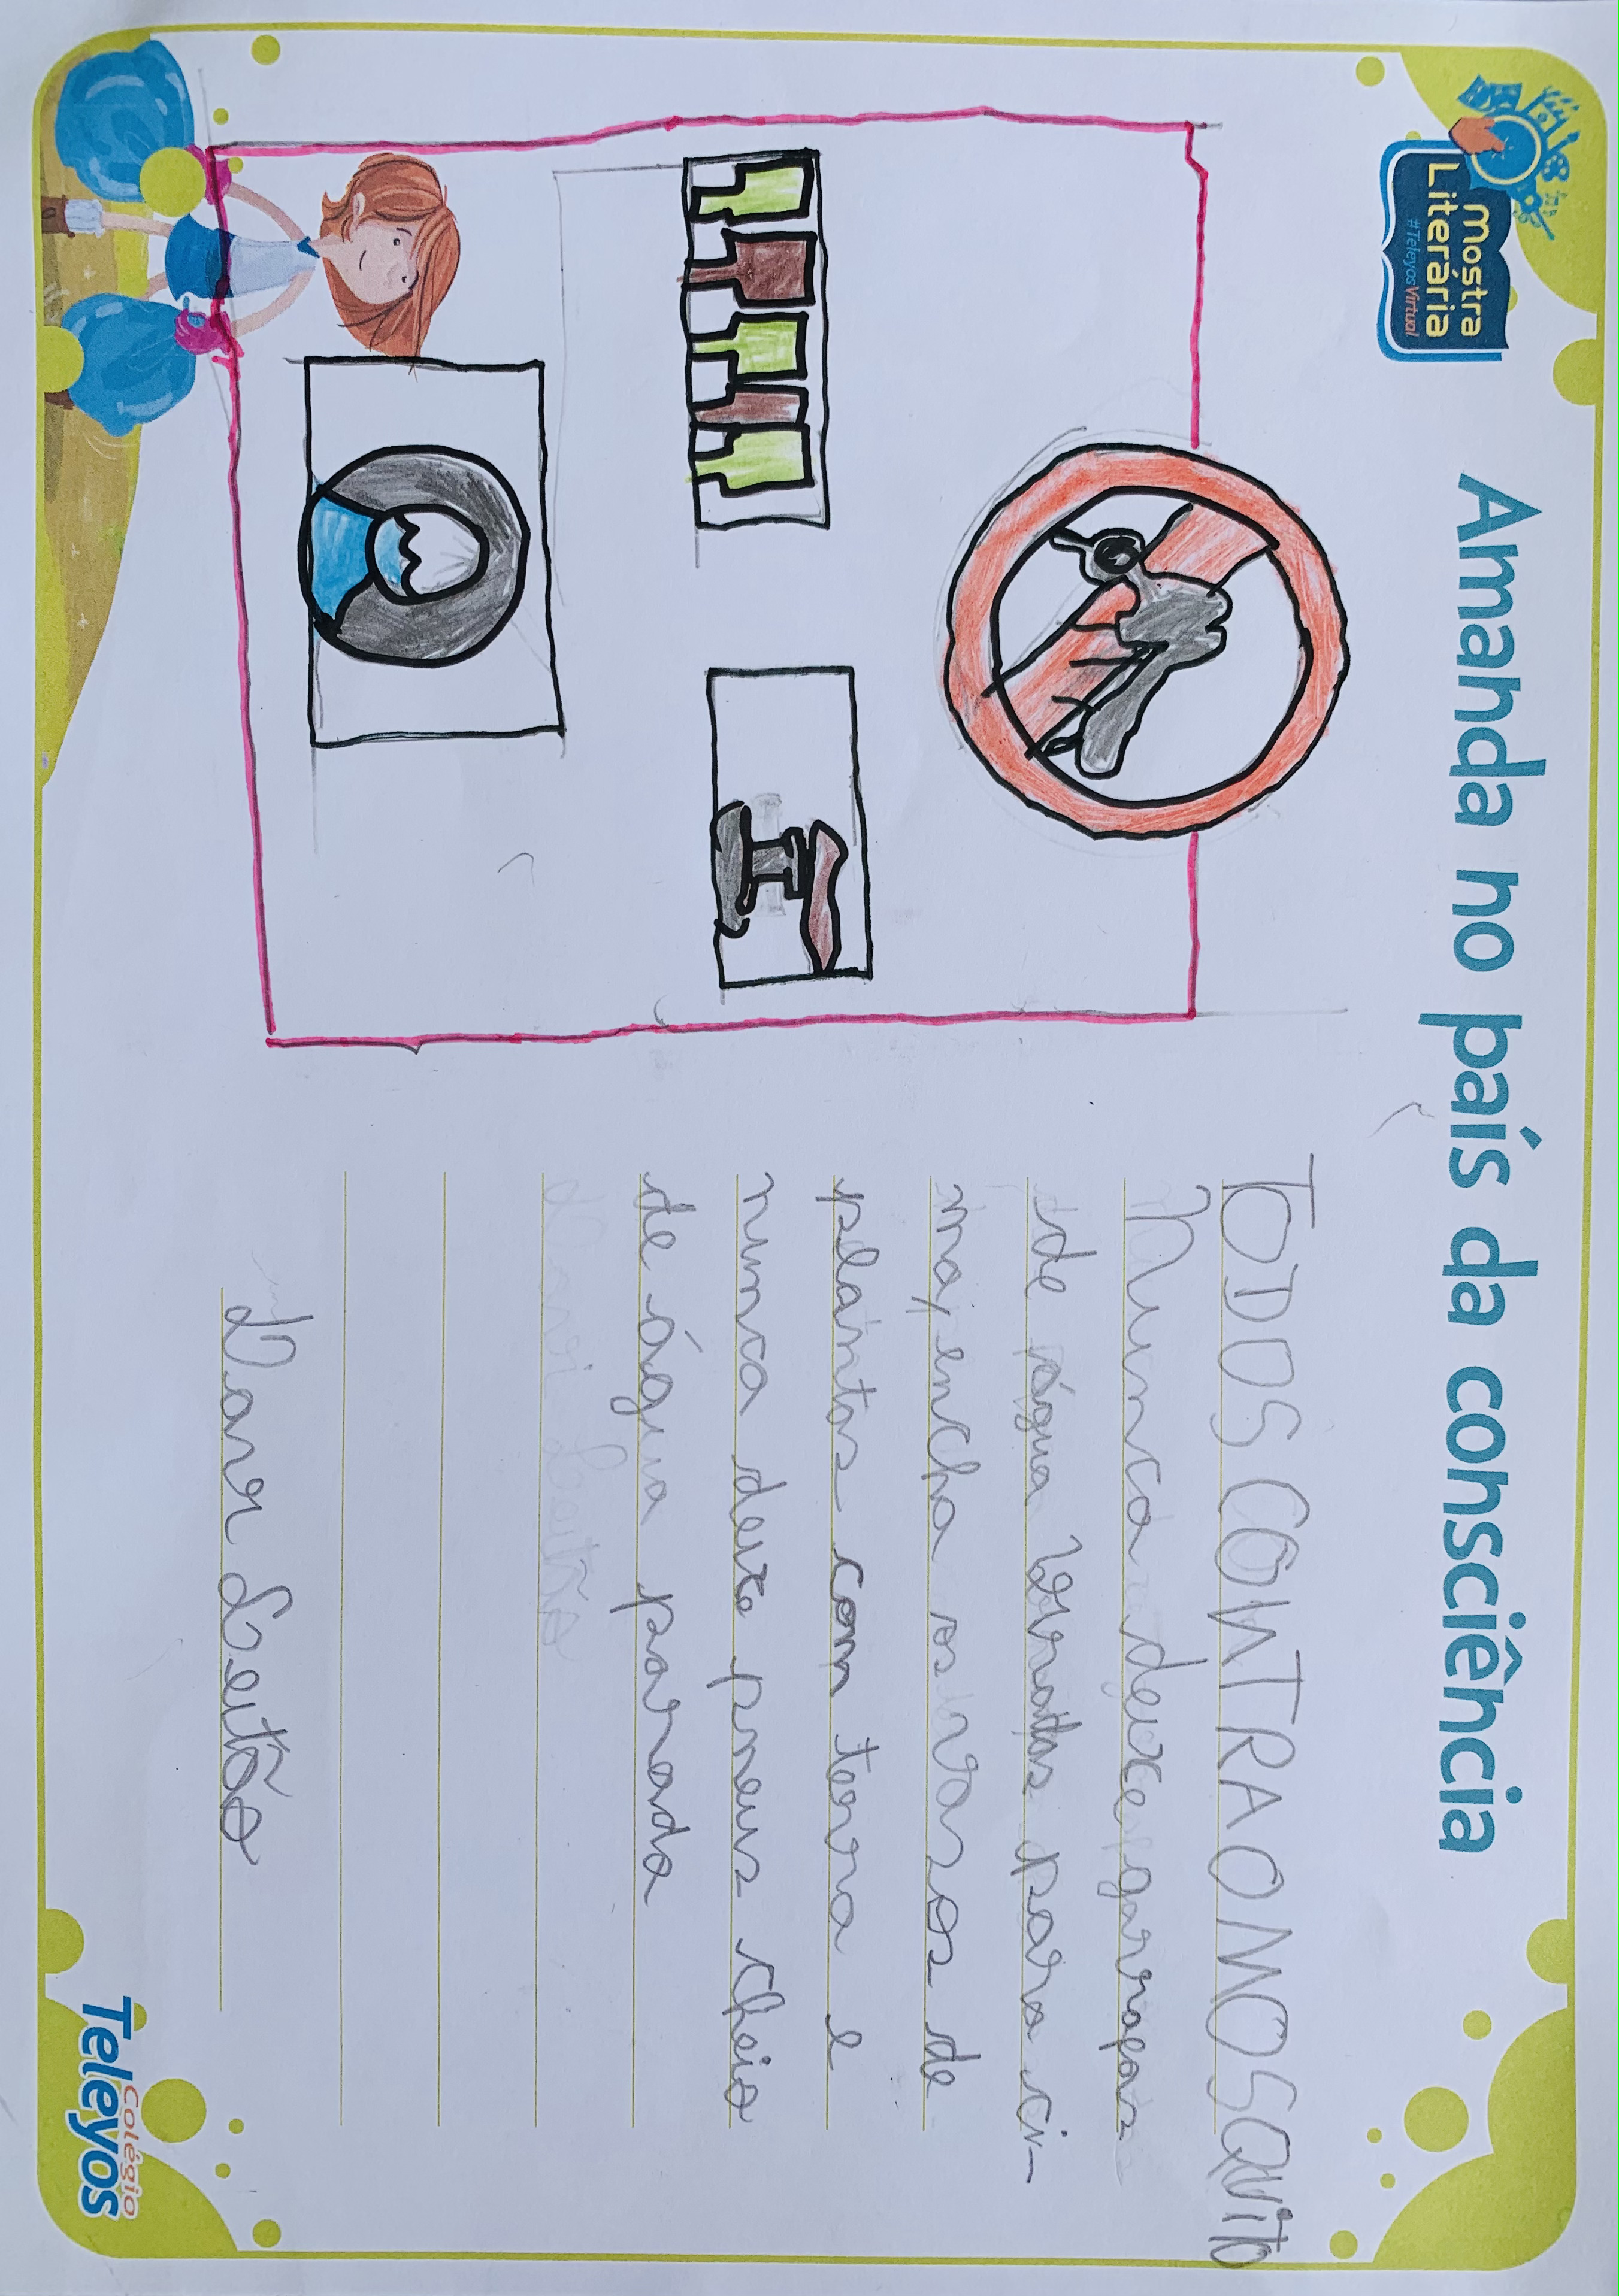 mostra
Literária
#TeleyosVirtual
Amanda no país da consciência
TODOS CONTRA O MOSQUITO
Nunca deixe garrafas
de água viradas para ci-
ma, encha os vasos de
plantas com terra e
nunca deixe pneus cheio
de água parada
Davi Leitão
Colégio
Teleyos